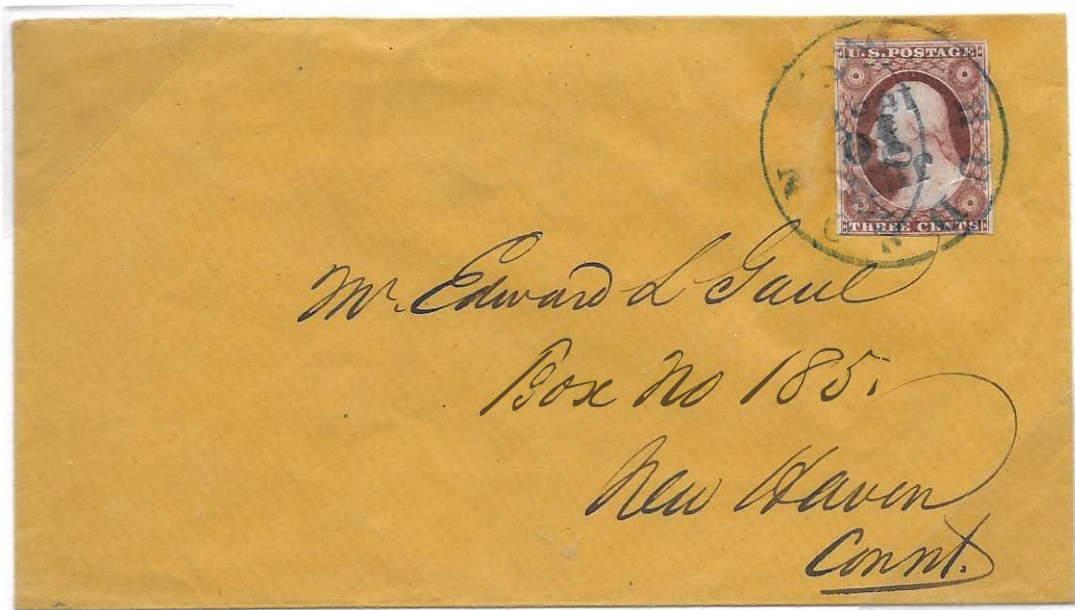 U.S. POSTAGE
THREE CENTS
Mr. Edward L Gaul
Box No 185.
New Haven
Connt.